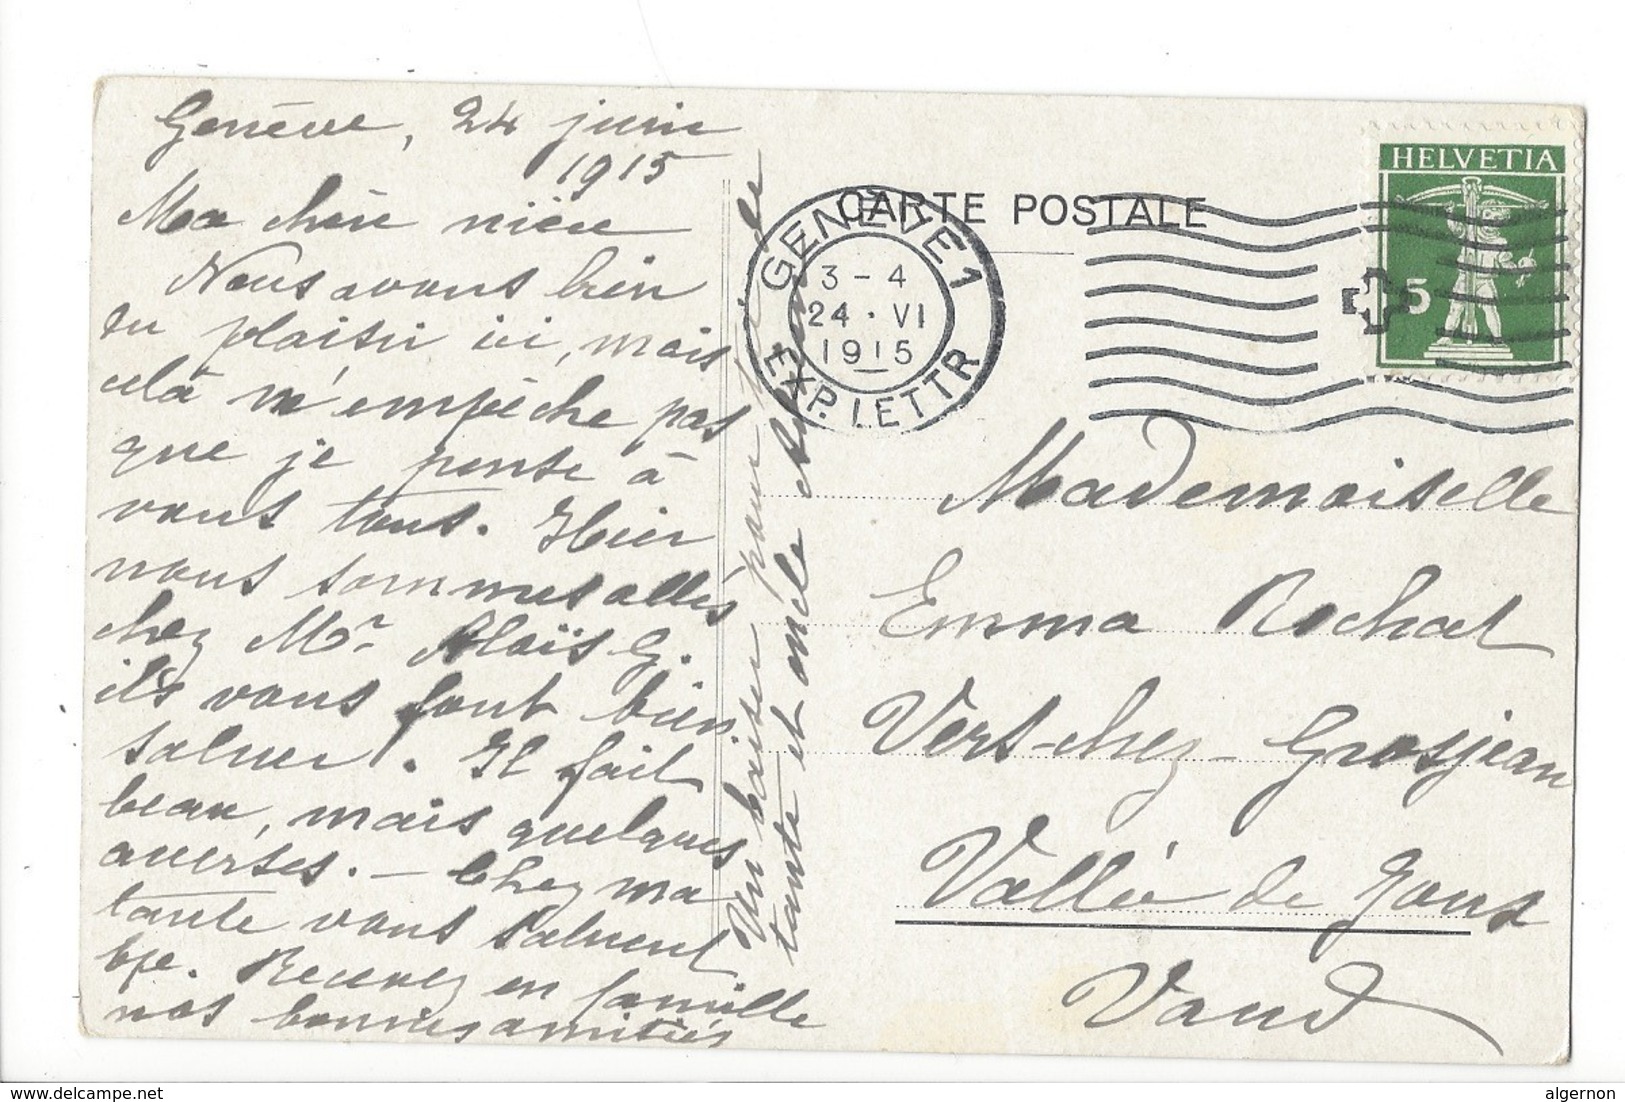 Genève, 24 juin
1915
Ma chère nièce
Nous avons bien
du plaisir ici, mais
celà m'empêche pas
que je pense à
vous tous. Hier
nous sommes allés
chez Mr. G.
ils vous font bien
saluer. Il fait
beau, mais quelques
averses. – Chez ma
tante vous saluent
bc. Recevez en famille
nos bonnes amitiés
Un baiser pour
tante et oncle
CARTE POSTALE
GENÈVE 1
3 - 4
24 · VI
1915
EXP. LETTR
HELVETIA
5
Mademoiselle
Emma Rochat
Vers-chez-Grosjean
Vallée de Joux
Vaud
www.delcampe.net
algernon